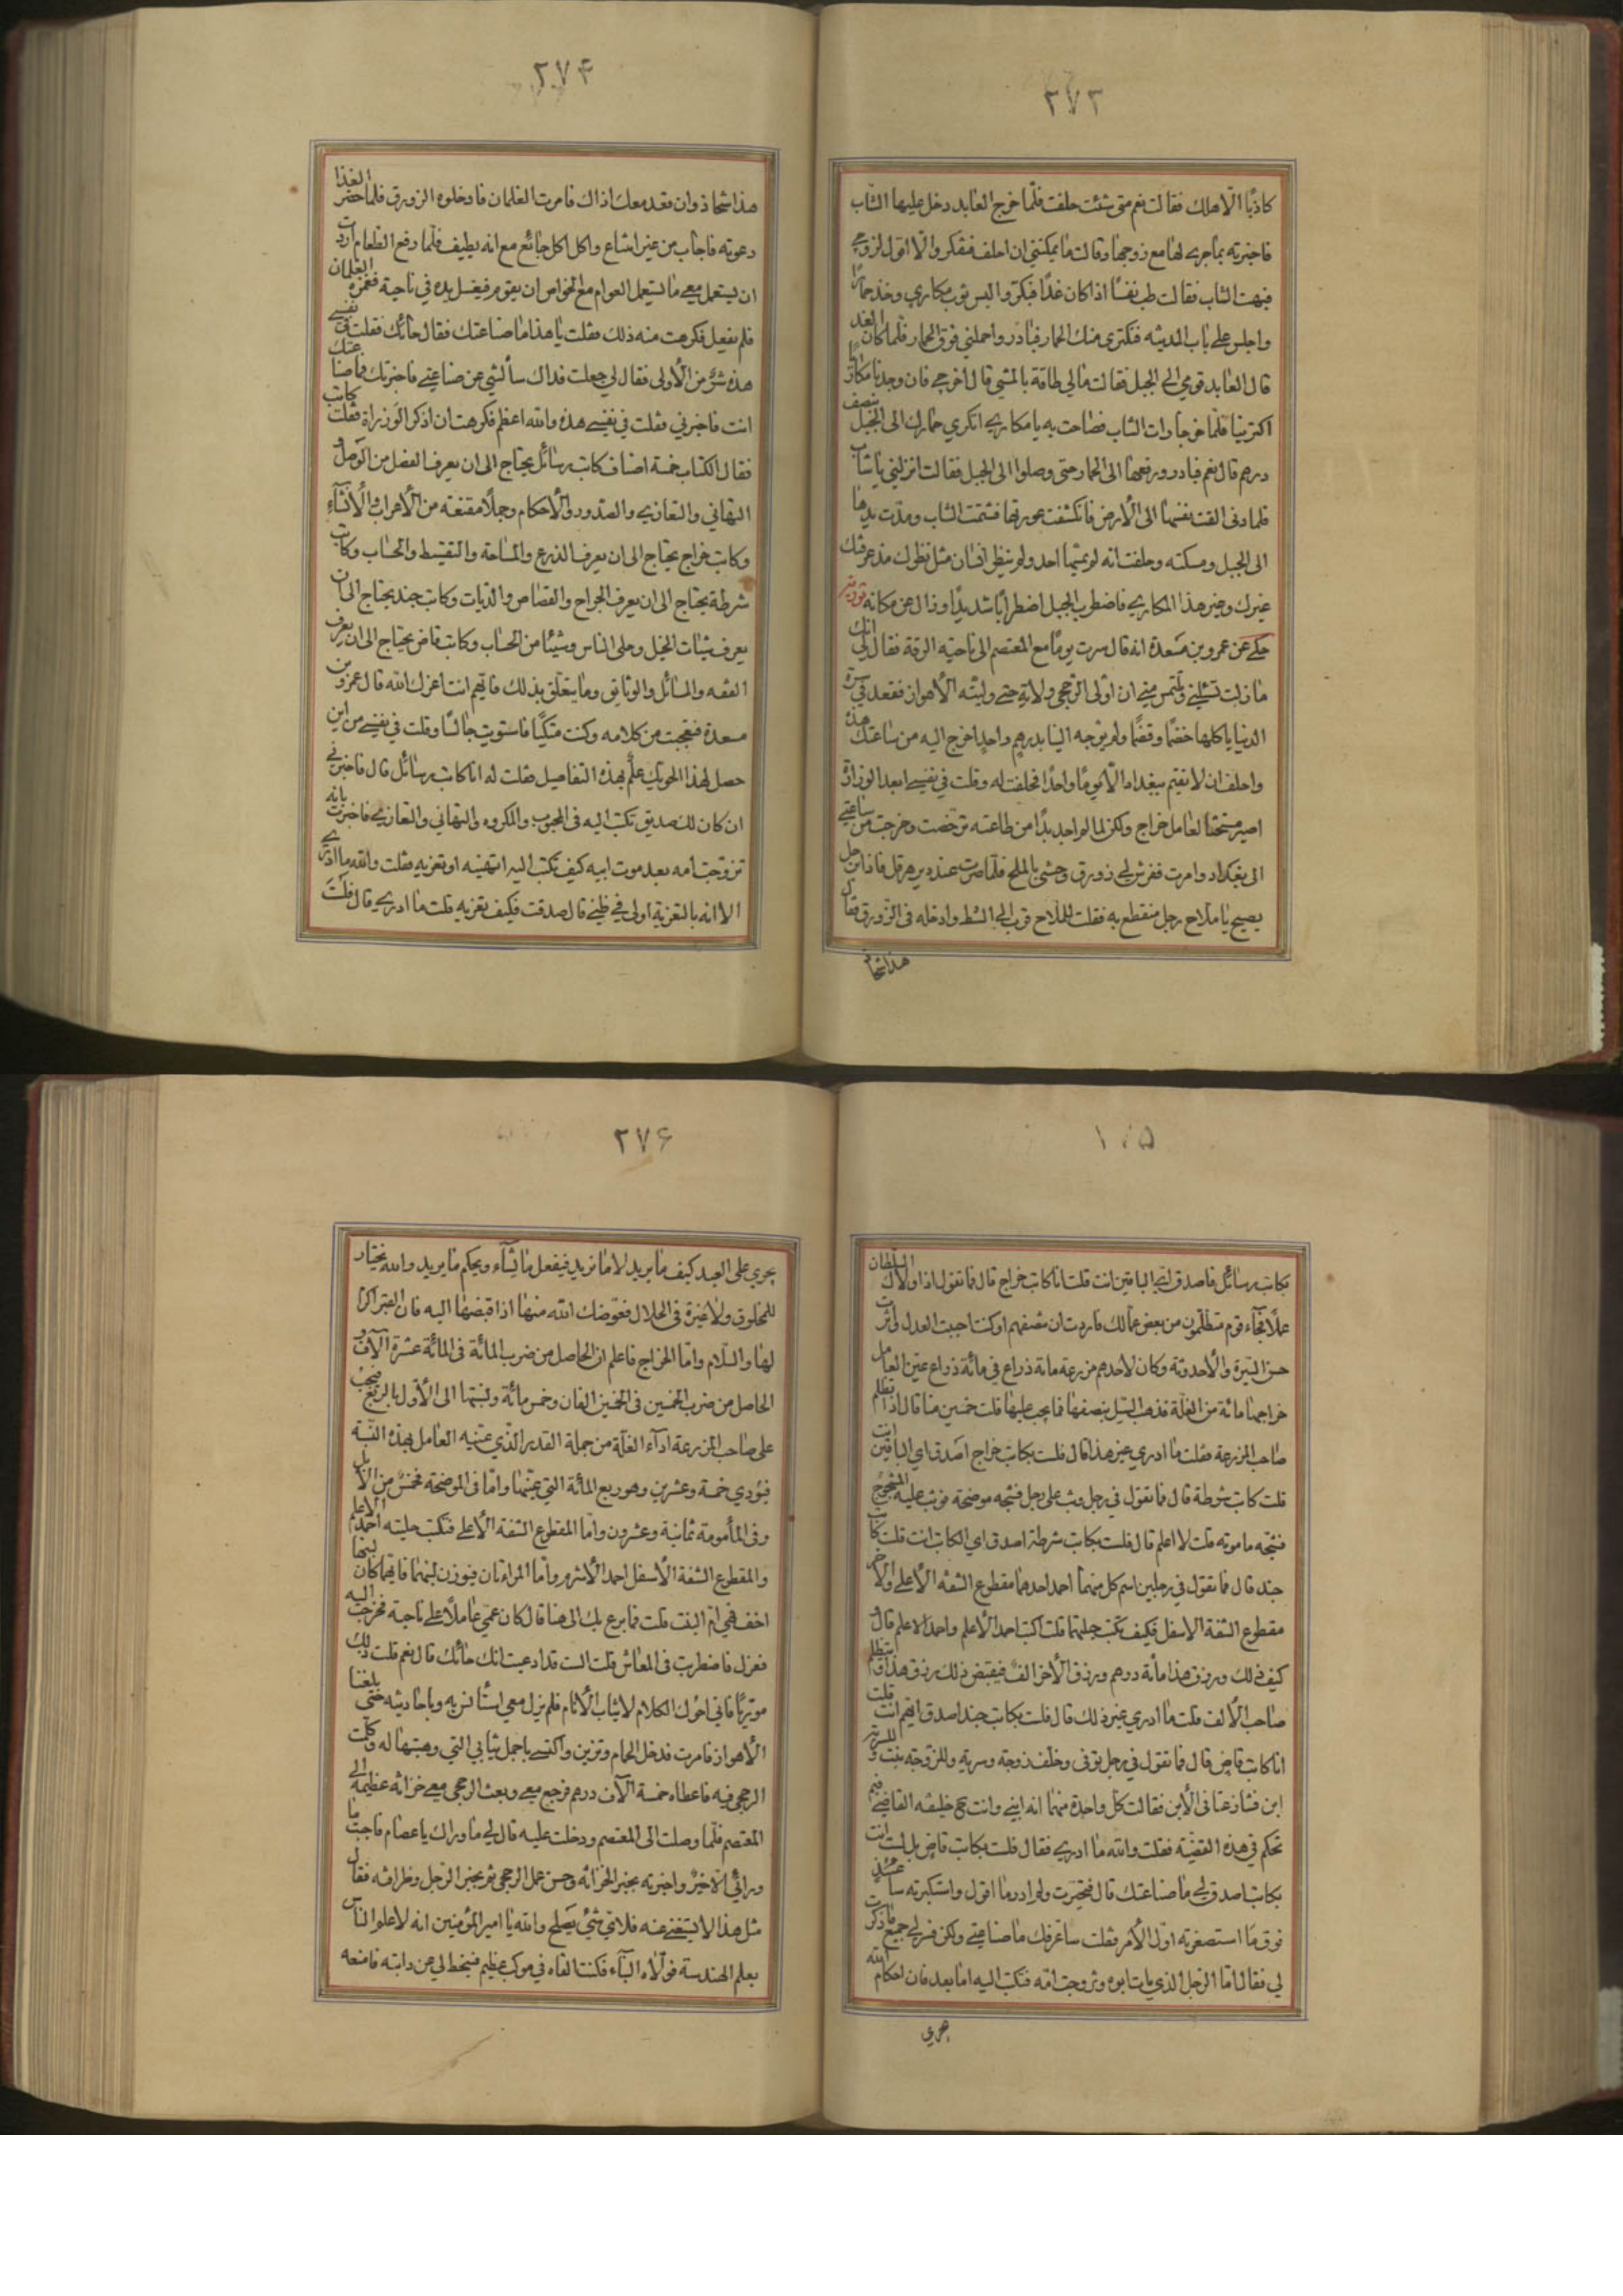 ٢٧٣
كاذبًا الّا هلك فقالت نعم متى شئت حلفت فلمّا خرج العابد دخل عليها الشاب
فاخبرته بماجرى لها مع زوجها وقالت ما يمكنني ان احلف ففكر والّا اقول لزوجي
فبهت الشاب فقالت طب نفسًا اذا كان غدًا فبكّر والبس ثوب مكاري وخذ حمارًا
واجلس على باب المدينه فنكتري منك الحمار فبادر واحملني فوق الحمار فلما كان الغد
قال العابد قومي الى الجبل فقالت مالي طاقة بالمشي قال اخرجي فان وجدنا مكاريًا
اكترينا فلمّا خرجا رات الشاب فصاحت به يا مكاري اتكري حمارك الى الجبل بنصف
درهم قال نعم فبادر ورفعها الى الحمار حتى وصلوا الى الجبل فقالت انزلني يا شاب
فلما دنى القت نفسها الى الارض فانكشفت عورتها فشتمت الشاب ومدّت يدها
الى الجبل ومسكته وحلفت انه لم يمسّها احد ولم ينظر انسان مثل نظرك مذ عرفتك
غيرك وغير هذا المكاري فاضطرب الجبل اضطرابًا شديدًا وزال عن مكانه
حكي عن عمرو بن مسعدة انه قال سرت يومًا مع المعتصم الى ناحية الرقة فقال لي انك
ما زلت تسئلني وتلتمس مني ان اولى الرخجي ولاية حتى وليته الاهواز فقعد في سرة
الدنيا ياكلها خضمًا وقضمًا ولم يوجه الينا بدرهم واحد اخرج اليه من ساعتك هذه
واحلف ان لا تقيم ببغداد الّا يومًا واحدًا فحلفت له وقلت في نفسي ابعد الوزارة
اصير مستحثًا لعامل خراج ولكن لما لم اجد بدًا من طاعته نهضت وخرجت من ساعتي
الى بغداد وامرت ففرش لي زورق وحشي بالملح فلمّا صرت عند دير هرقل فاذا رجل
يصيح يا ملاح رجل منقطع به فقلت للملاح قرب الى الشط وادخله في الزورق فقال
هذا شحاذ
٢٧۴
هذا شحاذ وان قعد معك اذاك فامرت الغلمان فادخلوه الزورق فلما حضر الغذا
دعوته فاجاب من غير امتناع واكل اكل جائع مع انه نظيف فلمّا رفع الطعام اردت
ان يستعمل معي ما يستعمل العوام مع الخواص ان يقوم فيغسل يده في ناحية فغمزه الغلمان
فلم يفعل فكرهت منه ذلك فقلت يا هذا ما صناعتك فقال حائك فقلت في نفسي
هذه شرّ من الاولى فقال لي جعلت فداك سألتني عن صناعتي فاخبرتك فما صناعتك
انت فاخبرني فقلت في نفسي هذه والله اعظم فكرهت ان اذكر الوزراة فقلت كاتب
فقال الكتاب خمسة اصناف كاتب رسائل يحتاج الى ان يعرف الفصل من الوصل و
التهاني والتعازي والصدور والاحكام وجملًا مقنعة من الاعراب والانشآء
وكاتب خراج يحتاج الى ان يعرف الذرع والمساحة والتقسيط والحساب وكاتب
شرطة يحتاج الى ان يعرف الجراح والقصاص والديات وكاتب جند يحتاج الى ان
يعرف شيات الخيل وحلى الناس وشيئًا من الحساب وكاتب قاض يحتاج الى ان يعرف
الفقه والمسائل والوثايق وما يتعلق بذلك فايّهم انت اعزك الله قال عمرو بن
مسعدة فتعجبت من كلامه وكنت متكيًا فاستويت جالسًا وقلت في نفسي من اين
حصل لهذا الحويك علمٌ بهذه التفاصيل فقلت له انا كاتب رسائل قال فاخبرني
ان كان لك صديق تكتب اليه في المحبوب والمكروه والتهاني والتعازي فاخبرت بانه
تزوجت امه بعد موت ابيه كيف تكتب اليه اتهنيه او تعزيه فقلت والله ما ادري
الا انه بالتعزية اولى في ظني قال صدقت فكيف تعزيه قلت ما ادري قال فلست
بكاتب رسائل فاصدق لي الباقين انت قلت انا كاتب خراج قال فما تقول اذا ولاك السلطان
عملًا فجآء قوم متظلّمون من بعض عمالك فاردت ان تنصفهم وكنت احببت العدل واثرت
حسن السيرة والاحدوثة وكان لاحدهم مزرعة مائة ذراع في مائة ذراع عيّن العامل
خراجها مائة من الغلة فذهب السيل بنصفها فما يجب عليها قلت خمسين منا قال اذا تظلم
صاحب المزرعة فقلت ما ادري غير هذا قال فلست بكاتب خراج اصدق اي الباقين انت
قلت كاتب شرطة قال فما تقول في رجل وثب على رجل فشجه موضحة فوثب عليه المشجوج
فشجه مامومة قلت لا اعلم قال فلست بكاتب شرطة اصدق اي الكاتب انت قلت كاتب
جند قال فما تقول في رجلين اسم كل منهما احمد احدهما مقطوع الشفة الاعلى والاخر
مقطوع الشفة الاسفل فكيف تكتب حليتهما قلت اكتب احمد الاعلم واحمد الاعلم قال و
كيف ذلك ورزق هذا مأية درهم ورزق الاخر الف فيقبض ذلك رزق هذا فيتظلم
صاحب الالف قلت ما ادري غير ذلك قال فلست بكاتب جند اصدق ايهم انت قلت
انا كاتب قاض قال فما تقول في رجل توفى وخلف زوجة وسرية وللزوجة بنت وللسرية
ابن فتنازعتا في الابن فقالت كل واحدة منهما انه ابني وانت خليفة القاضي فبم
تحكم في هذه القضيّة فقلت والله ما ادري فقال فلست بكاتب قاض بل انت
بكاتب اصدق لي ما صناعتك قال فتحيرت ولم ادر ما اقول واستكبرته ساعتئذ
فوق ما استصغرته اول الامر فقلت ساعرفك ما صناعتي ولكن فسر لي جميع ما ذكرت
لي فقال اما الرجل الذي مات ابوه وتزوجت امّه فتكتب اليه اما بعد فان احكام الله
يجري
٢٧۶
يجري على العبد كيف ما يريد لا ما نريد فيفعل ما يشآء ويحكم ما يريد والله يختار
للمخلوق ولا غيرة في الحلال فعوّضك الله منها اذا قبضها اليه فان القبر اكرم
لها والسلام وامّا الخراج فاعلم ان الحاصل من ضرب المائة في المائة عشرة الآف و
الحاصل من ضرب الخمسين في الخمسين الفان وخمس مائة ونسبتها الى الاوّل بالربع فيجب
على صاحب المزرعة ادآء الغلة من جملة القدر الذي عينه العامل بهذه النسبة
فيؤدي خمسة وعشرين وهو ربع المائة التي عيّنها وامّا في الموضحة فخمس من الابل
وفي المأمومة ثمانية وعشرون وامّا المقطوع الشفة الاعلى فتكتب حليته احمد الاعلم
والمقطوع الشفة الاسفل احمد الاشرم وامّا المراتان فيوزن لبنهما فايهما كان لبنها
اخف فهي امّ البنت قلت فما برع بك الى هنا قال كان عمّي عاملًا على ناحية فخرجت اليه
فعزل فاضطربت في المعاش قلت الست قد ادعيت انك حائك قال نعم قلت ذلك
فاني احوك الكلام لا ثياب الانام فلم يزل معي استأنس به وباحاديثه حتى بلغنا
الاهواز فامرت فدخل الحمام وتزين واكتسى باجمل ثيابي التي وهبتها له وكلّمت
الرخجي فيه فاعطاه خمسة الآف درهم فرجع معي وبعث الرخجي معي خزانة عظيمة الى
المعتصم فلمّا وصلت الى المعتصم ودخلت عليه قال لي ما وراك يا عصام فاجبت ما
ورائي الا خيرٌ واخبرته بخبر الخزانة وحسن عمل الرخجي ثم بخبر الرجل وظرافته فقال
مثل هذا لا يستغنى عنه فلاي شيء يصلح والله يا امير المؤمنين انه لاعلم الناس
بعلم الهندسة فولّاه البنآء فكنت القاه في موكب عظيم فينحط لي عن دابته فامنعه